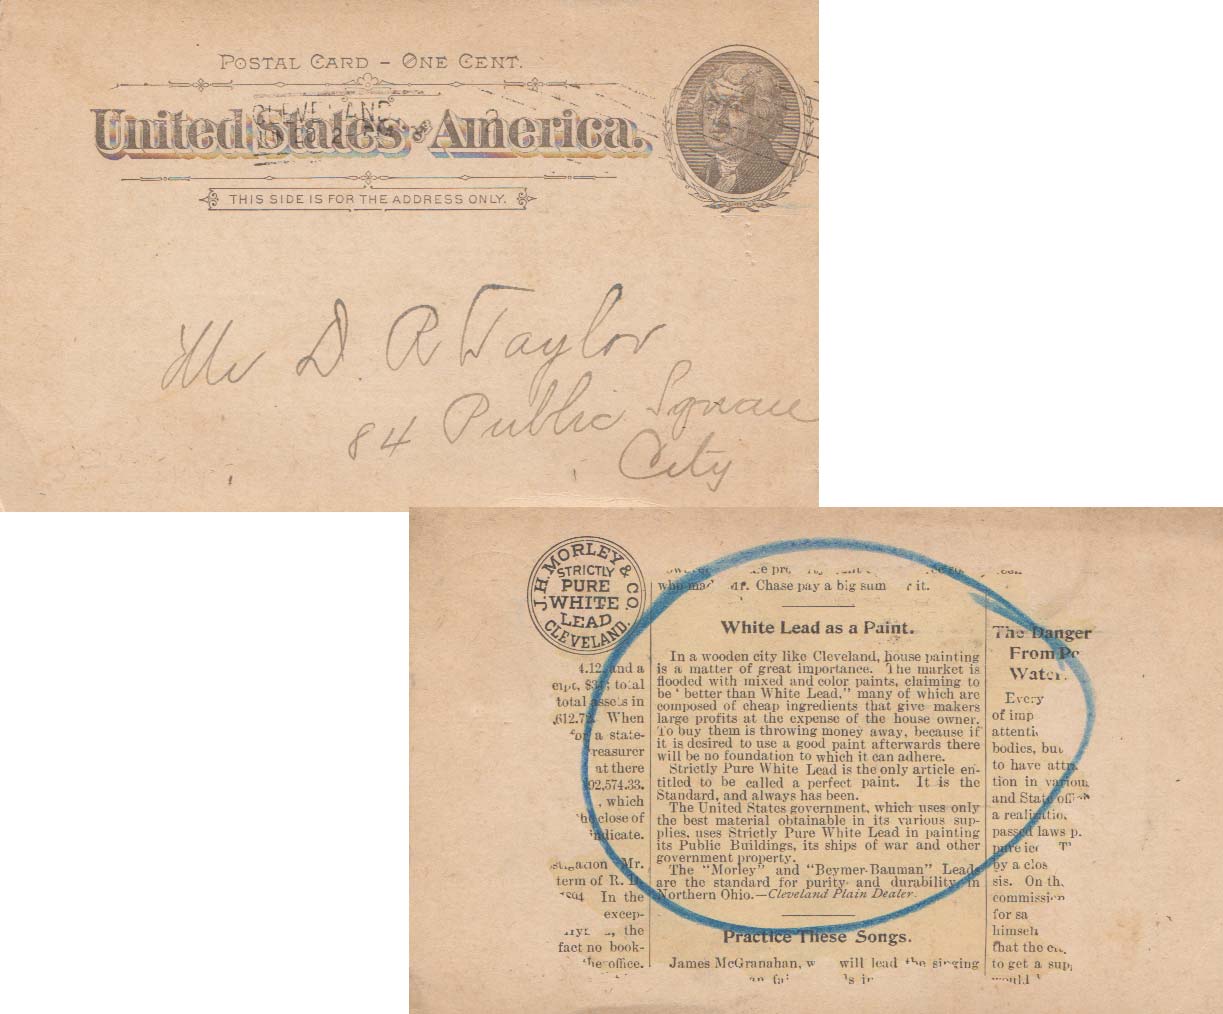 POSTAL CARD – ONE CENT.
CLEVELAND
United States of America.
THIS SIDE IS FOR THE ADDRESS ONLY.
Mr D. R Taylor
84 Public Square
City
J. H. MORLEY & CO.
STRICTLY
PURE
WHITE
LEAD
CLEVELAND.
4.12, and a
total
total assets in
,612.7 When
a state-
reasurer
at there
92,574.33.
, which
he close of
indicate.
Mr.
term of R. D.
In the
excep-
, the
fact no book-
the office.
who mad Mr. Chase pay a big sum r it.
White Lead as a Paint.
In a wooden city like Cleveland, house painting
is a matter of great importance. The market is
flooded with mixed and color paints, claiming to
be ‘ better than White Lead,” many of which are
composed of cheap ingredients that give makers
large profits at the expense of the house owner.
To buy them is throwing money away, because if
it is desired to use a good paint afterwards there
will be no foundation to which it can adhere.
Strictly Pure White Lead is the only article en-
titled to be called a perfect paint. It is the
Standard, and always has been.
The United States government, which uses only
the best material obtainable in its various sup-
plies, uses Strictly Pure White Lead in painting
its Public Buildings, its ships of war and other
government property.
The “Morley” and “Beymer-Bauman” Leads
are the standard for purity and durability in
Northern Ohio.—Cleveland Plain Dealer.
Practice These Songs.
James McGranahan, w will lead the singing
The Danger
From Po
Water.
Every
of imp
attenti
bodies, but
to have attra
tion in various
and State offi
a realization
passed laws p
pure ice T
by a clos
sis. On th
commission
for sa
himself
that the
to get a sup
would